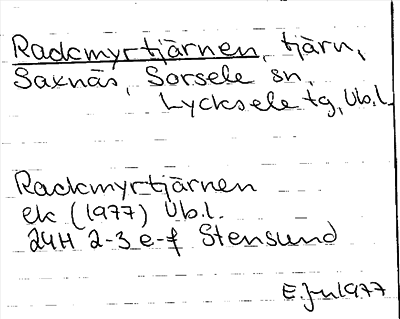 Rackmyrtjärnen, tjärn,
Saxnäs, Sorsele sn,
Lycksele tg, Vb.l.
Rackmyrtjärnen
ek (1977) Vb.l.
24H 2-3 e-f Stensund
1977